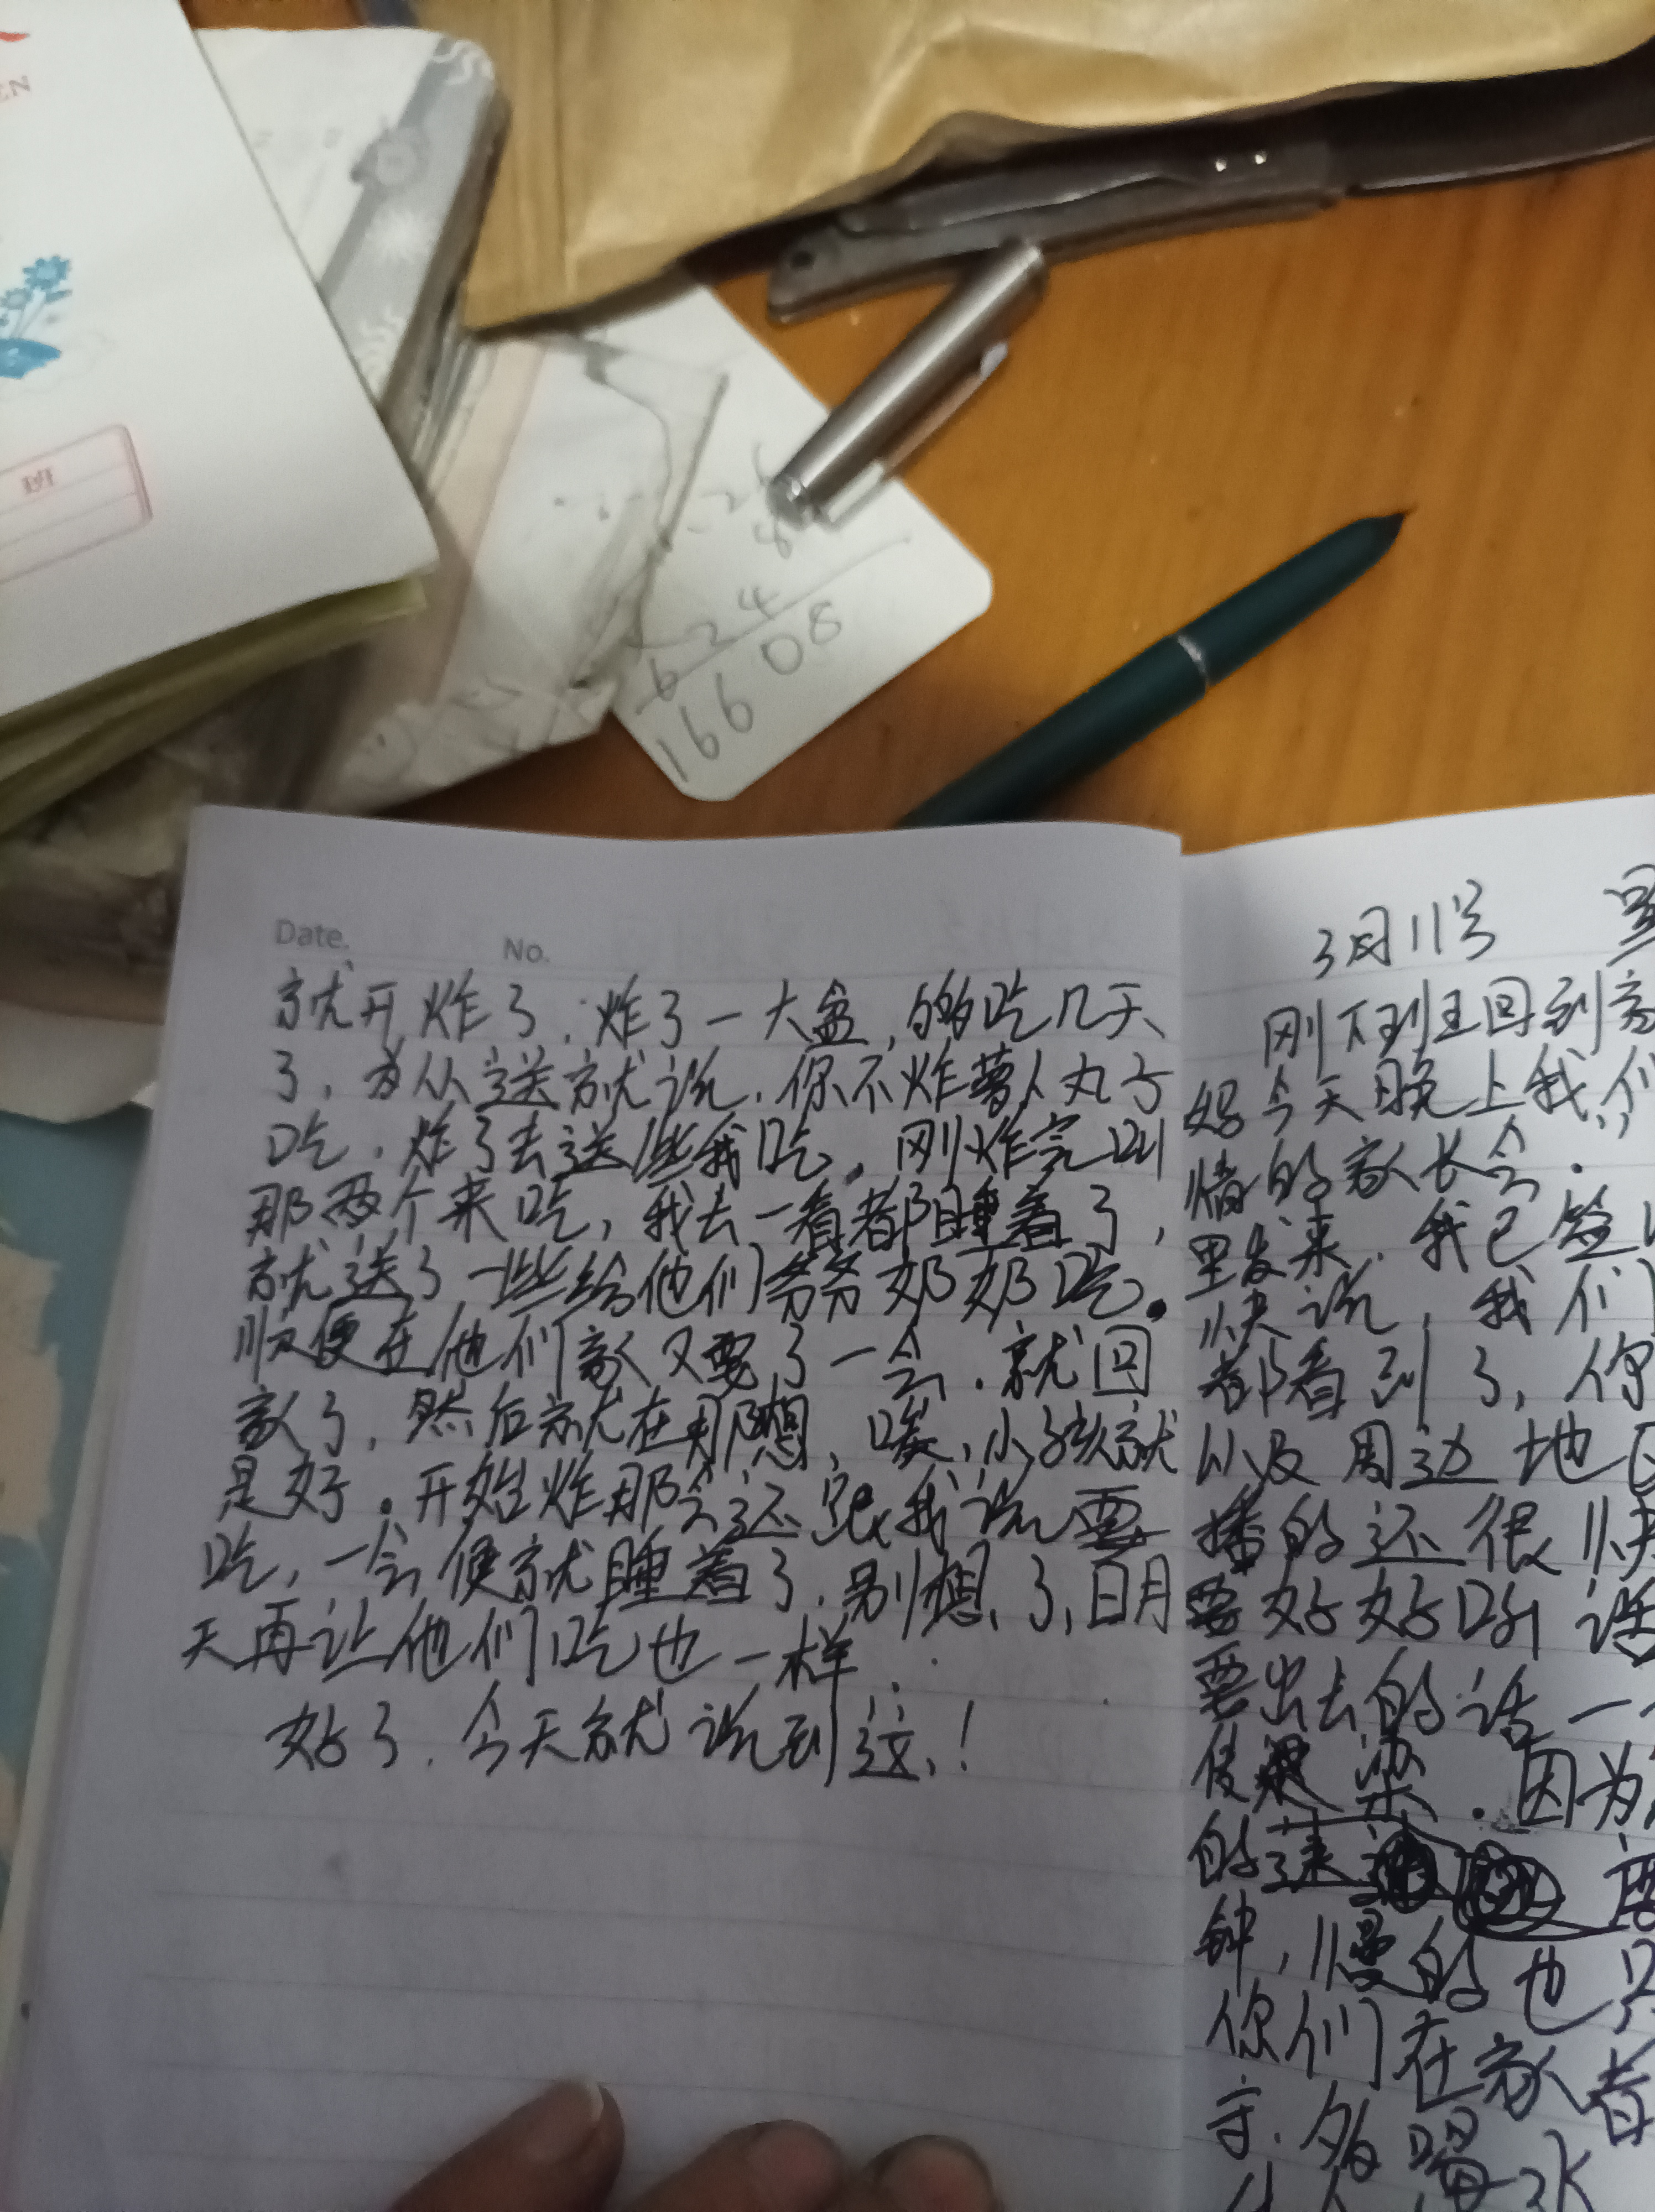 EN
班
8
6 2 4
16608
Date. No.
就开炸了,炸了一大盆,的够吃几天
了,为从送就说,你不炸萝卜丸子
吃,炸了去送些我吃。刚炸完叫
那两个来吃,我去一看都睡着了,
就送了一些给他们爷爷奶奶吃。
顺便在他们家又耍了一会,就回
家了,然后就在那想,唉,小孩就
是好。开始炸那会还跟我说要
吃,一会便就睡着了,别想了,明
天再让他们吃也一样。
好了,今天就说到这!
3月11号
刚下班回到家
好今天晚上我们
情的家长会.
里发来,我已签
快说,我们
都看到了,你
以及周边地区
播的还很快
要好好听话
要出去的话一
传染.因为
的
钟,慢的也只
你们在家看
守.多喝水